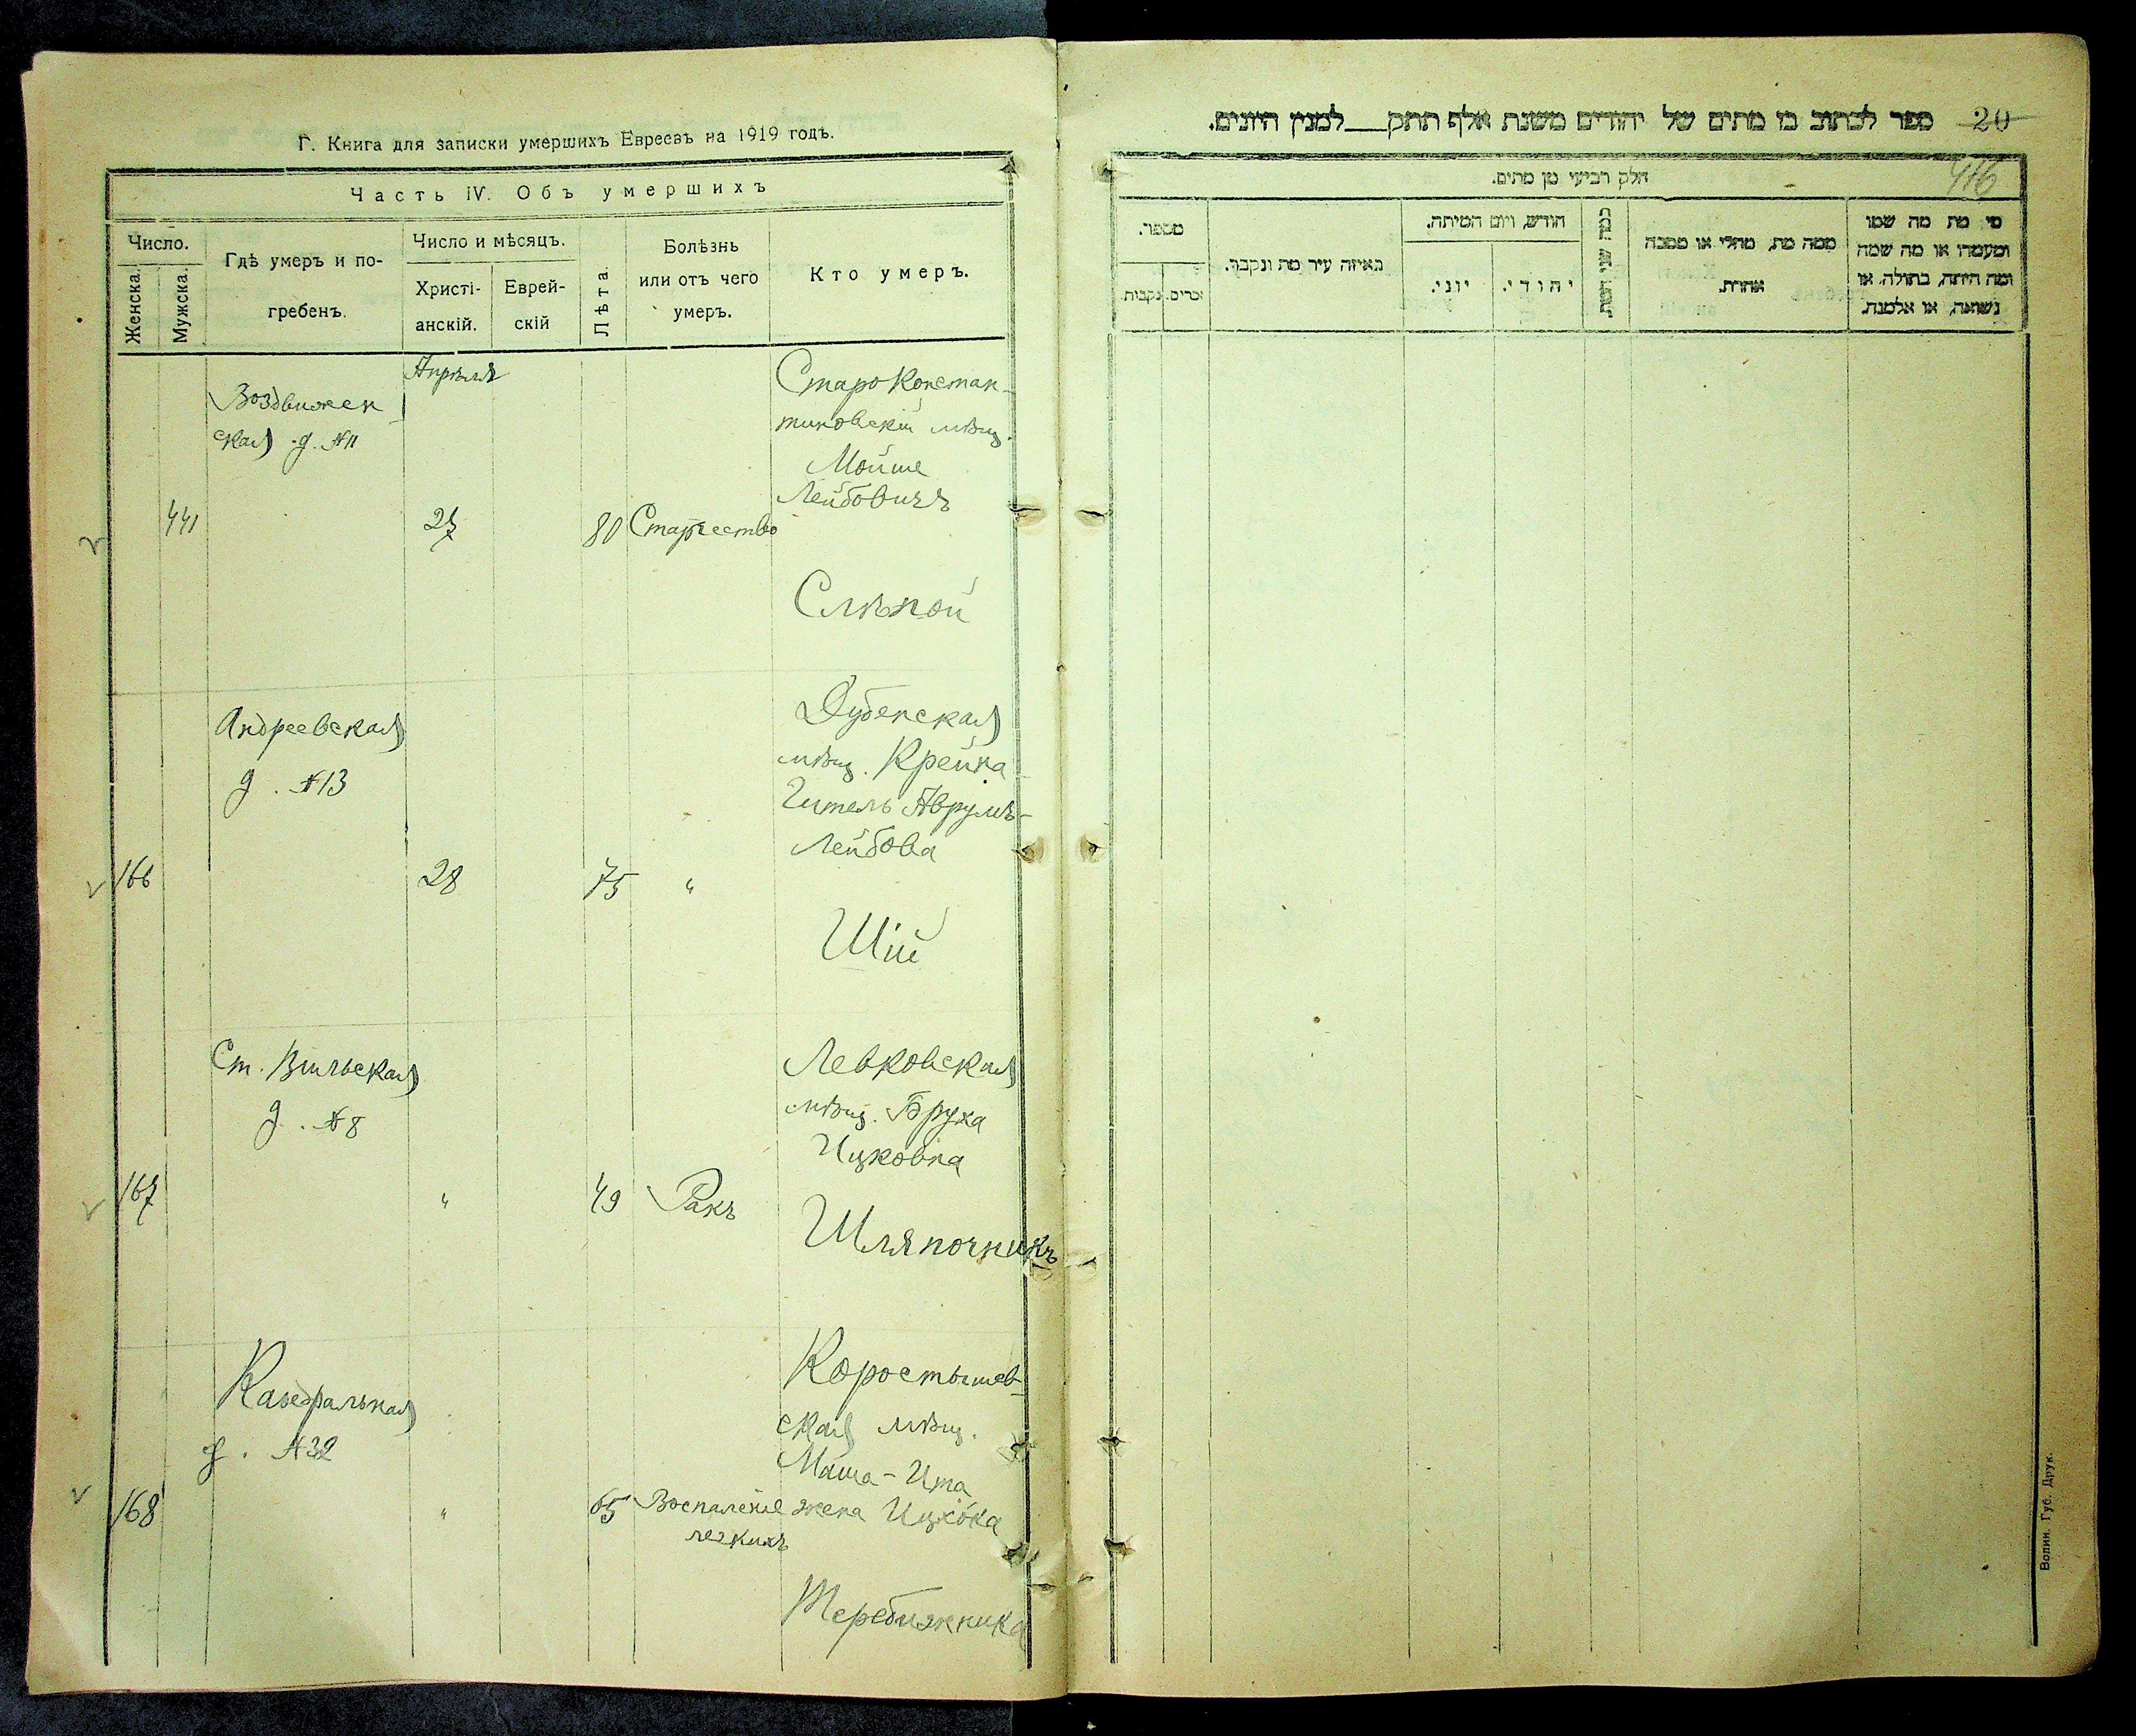 Г. Книга для записки умершихъ Евреевъ на 1919 годъ.
Часть IV. Объ умершихъ
Число.
Женска.
Мужска.
Гдѣ умеръ и по-
гребенъ.
Число и мѣсяцъ.
Христі-
анскій.
Еврей-
скій
Лѣта.
Болѣзнь
или отъ чего
умеръ.
Кто умеръ.
Апрѣля
Воздвижен
ская д. №11
441
27
80
Старчество
Старокостан-
тиновскій мѣщ.
Мойше
Лейбовичъ
Слѣпой
Андреевская
д. №13
166
28
75
"
Дубенская
мѣщ. Крейна
Гитель Аврумъ-
Лейбова
Шій
Ст. Вильская
д. №8
167
"
49
Ракъ
Левковская
мѣщ. Бруха
Ицковна
Шляпочникъ
Каѳедральная
д. №32
168
"
65
Воспаленіе
легкихъ
Коростышев-
ская мѣщ.
Маша-Ита
жена Ицкока
Теребижника
20
ספר לכתוב בו מתים של יהודים משנת אלף תתק___למנין היונים.
416
חלק רביעי מן מתים.
מי מת מה שמו
ומעמדו או מה שמה
ומה היתה, בתולה, או
נשואה, או אלמנה.
ממה מת, מחלי או מסבה
אחרת.
כמה שני המת.
חודש, ויום המיתה.
יהודי.
יוני.
באיזה עיר מת ונקבר.
מספר.
זכרים.
נקבות.
Волин. Губ. Друк.